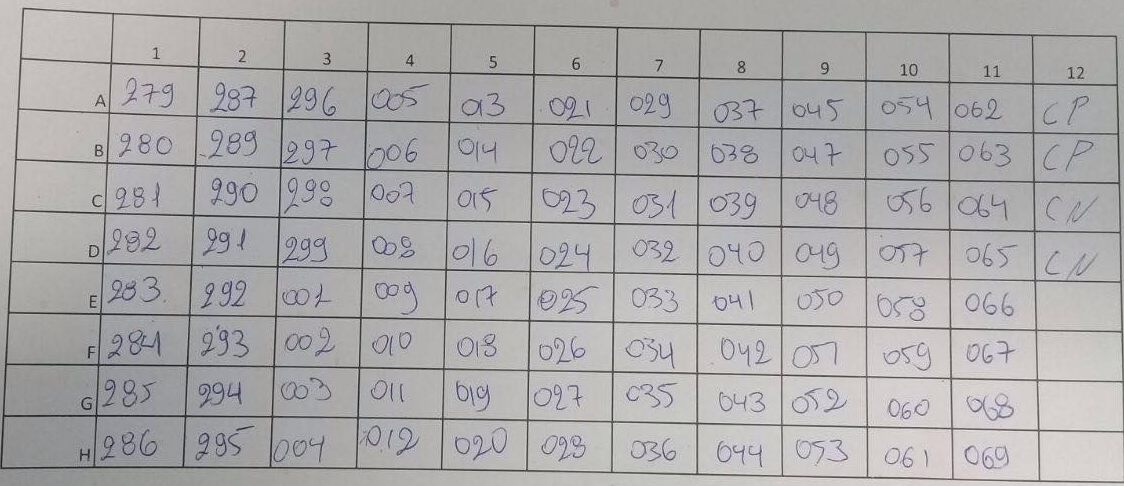 1 2 3 4 5 6 7 8 9 10 11 12
A 279 287 296 005 013 021 029 037 045 054 062 CP
B 280 289 297 006 014 022 030 038 047 055 063 CP
C 281 290 298 007 015 023 031 039 048 056 064 CN
D 282 291 299 008 016 024 032 040 049 057 065 CN
E 283 292 001 009 017 025 033 041 050 058 066
F 284 293 002 010 018 026 034 042 051 059 067
G 285 294 003 011 019 027 035 043 052 060 068
H 286 295 004 012 020 028 036 044 053 061 069